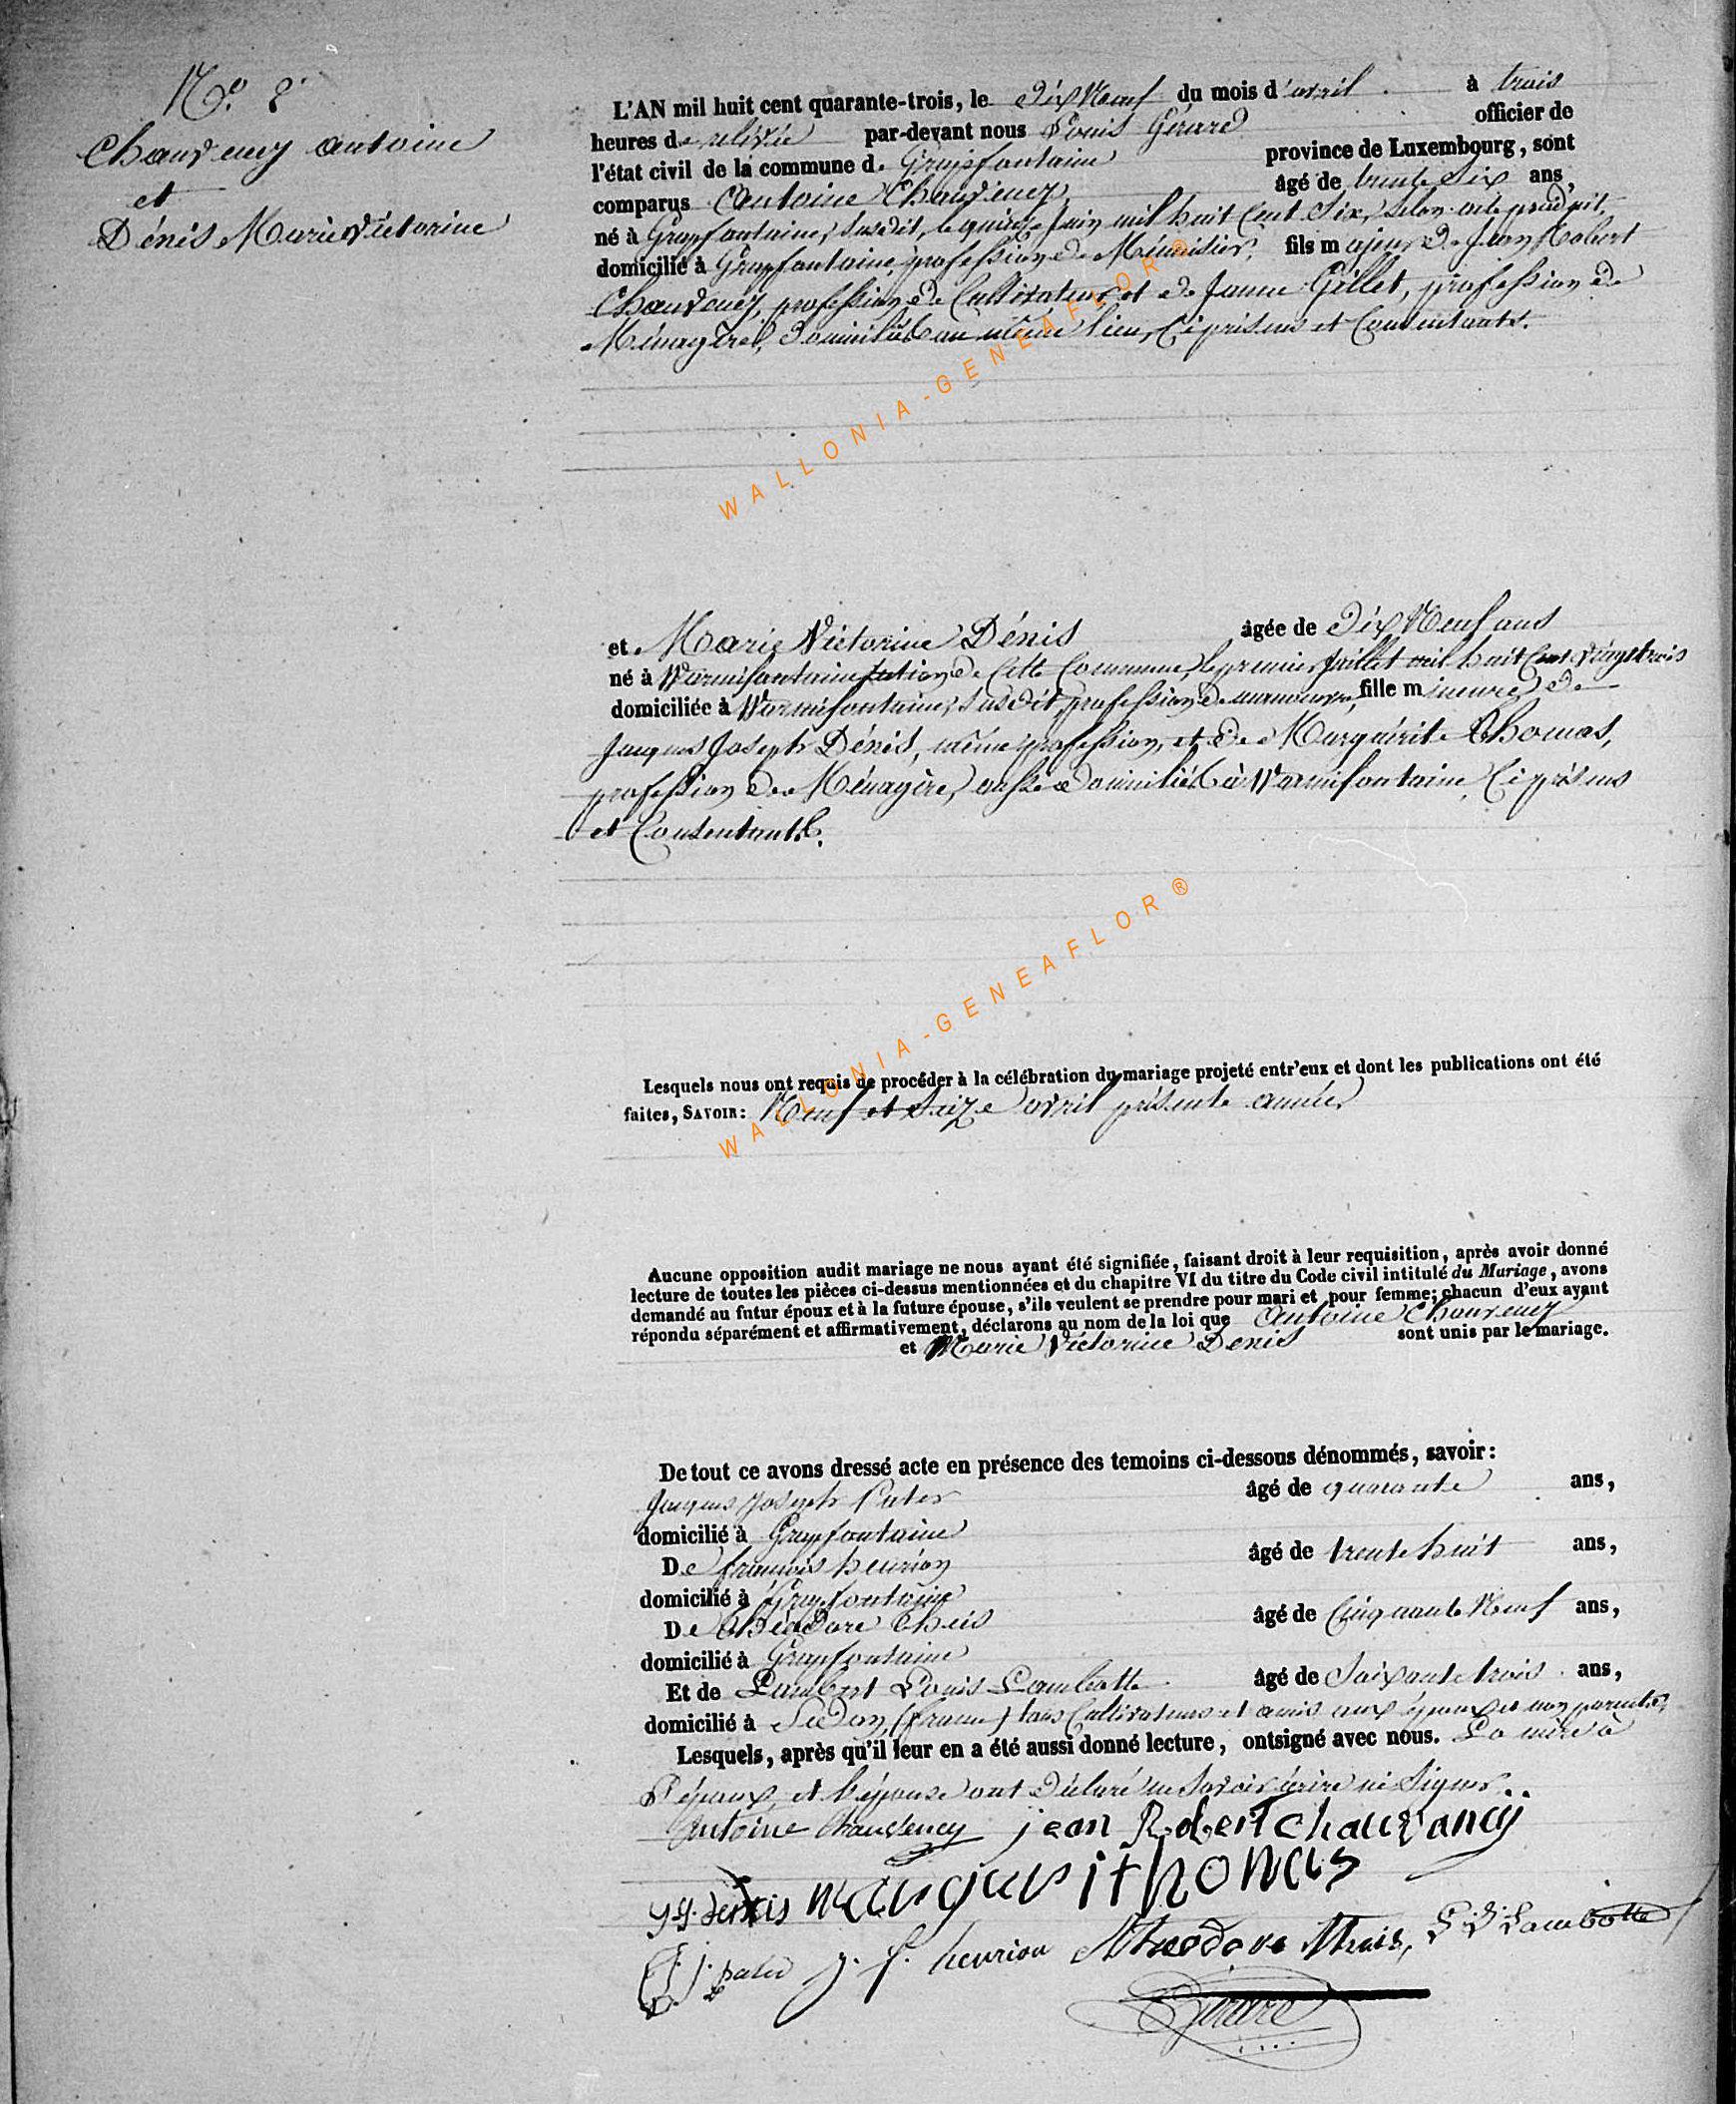 N.° 8
Chauvency Antoine
et
Dénis Marie Victorine
L'AN mil huit cent quarante-trois, le dix Neuf du mois d'avril à trois
heures de relevée par-devant nous Louis Gérard officier de
l'état civil de la commune de Grapfontaine province de Luxembourg, sont
comparus Antoine Chauvency âgé de trente Six ans,
né à Grapfontaine, susdit, le quinze Juin mil huit Cent Six, selon acte produit,
domicilié à Grapfontaine, profession de Ménuisier, fils majeur de Jean Robert
Chauvency, profession de Cultivateur, et de Jeanne Gillet, profession de
Ménagère, domiciliés au même lieu, Ci présens et Consentants.
et Marie Victorine Dénis âgée de Dix Neuf ans
né à Warmifontaine section de Cette Commune, le premier Juillet mil huit Cent vingt trois
domiciliée à Warmifontaine, susdit, profession de manœuvre, fille mineure de
Jacques Joseph Dénis, même profession, et de Marguérite Thomas,
profession de Ménagère, domiciliés à Warmifontaine, Ci présens
et Consentants.
WALLONIA-GENEAFLOR®
WALLONIA-GENEAFLOR®
Lesquels nous ont requis de procéder à la célébration du mariage projeté entr'eux et dont les publications ont été
faites, SAVOIR: Neuf et Seize avril présente année
Aucune opposition audit mariage ne nous ayant été signifiée, faisant droit à leur requisition, après avoir donné
lecture de toutes les pièces ci-dessus mentionnées et du chapitre VI du titre du Code civil intitulé du Mariage, avons
demandé au futur époux et à la future épouse, s'ils veulent se prendre pour mari et pour femme; chacun d'eux ayant
répondu séparément et affirmativement, déclarons au nom de la loi que Antoine Chauvency
et Marie Victorine Denis sont unis par le mariage.
De tout ce avons dressé acte en présence des temoins ci-dessous dénommés, savoir:
Jacques Joseph Pater âgé de quarante ans,
domicilié à Grapfontaine
De françois henrion âgé de trente huit ans,
domicilié à Grapfontaine
De Théodore Theis âgé de Cinquante Neuf ans,
domicilié à Grapfontaine
Et de Lambert Louis Lambotte âgé de Soixante trois ans,
domicilié à Sedan, (france) tous Cultivateurs et amis aux époux et non parents,
Lesquels, après qu'il leur en a été aussi donné lecture, ont signé avec nous. La mère à
l'époux, et l'épouse ont Déclaré ne Savoir écrire ni Signer.
Antoine Chauvency jean Robert Chauvancy
denis marguerit thomas
j. j. pater j. f. henrion Theodore Theis, L. L. Lambotte
Gérard